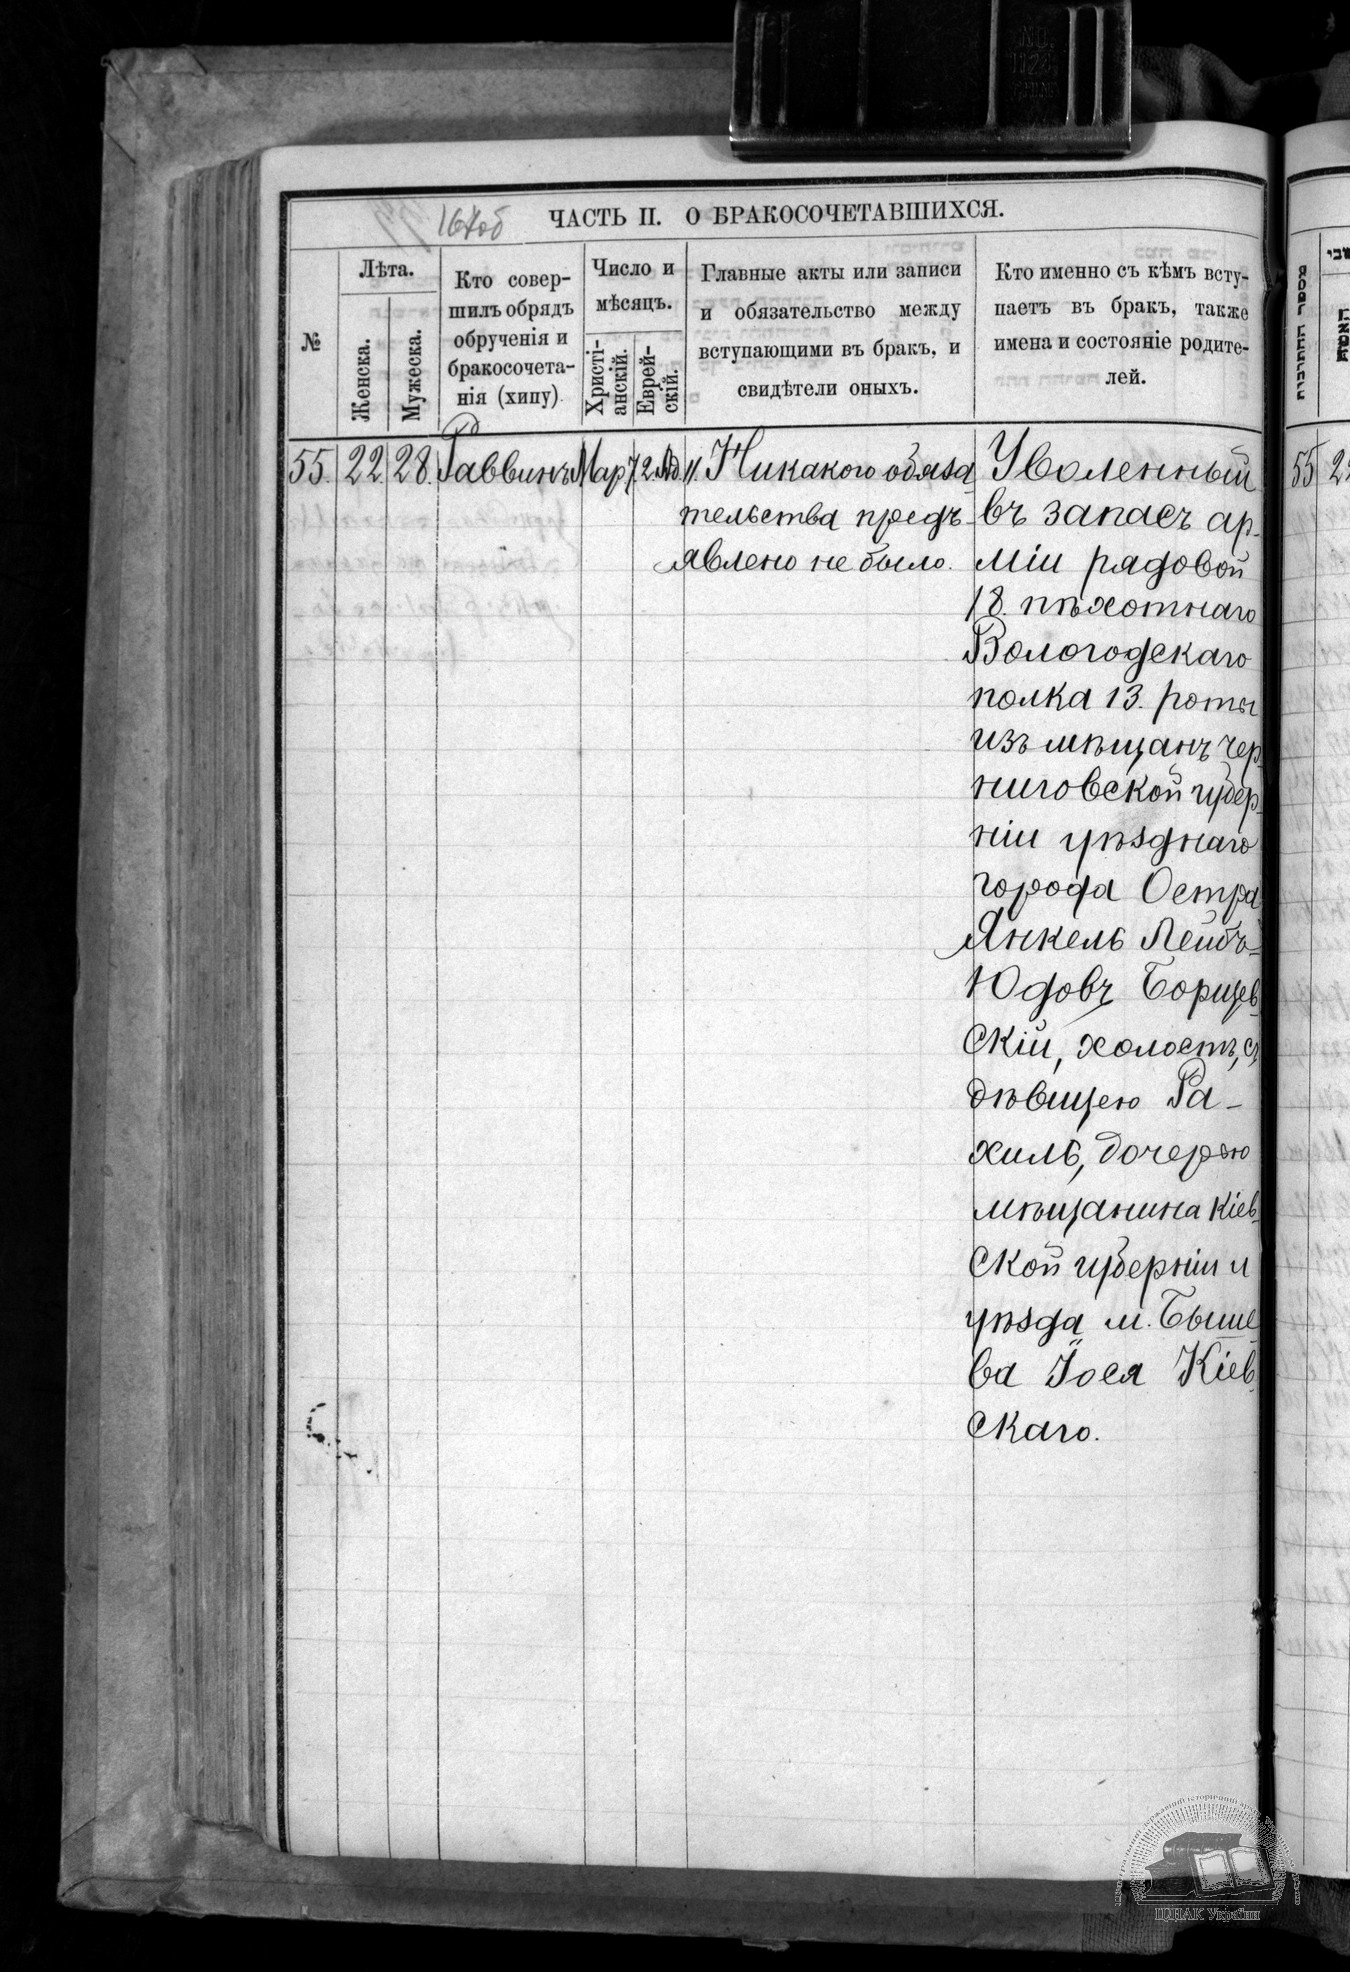 NO.
112
CHINA
164об
ЧАСТЬ II. О БРАКОСОЧЕТАВШИХСЯ.
№
Лѣта.
Женска.
Мужеска.
Кто совер-
шилъ обрядъ
обрученія и
бракосочета-
нія (хипу)
Число и
мѣсяцъ.
Христі-
анскій.
Еврей-
скій.
Главные акты или записи
и обязательство между
вступающими въ бракъ, и
свидѣтели оныхъ.
Кто именно съ кѣмъ всту-
паетъ въ бракъ, также
имена и состояніе родите-
лей.
55. 22. 28. Раввинъ Мар 7 2. Ад. II. Никакого обяза
тельства предъ-
явлено не было.
Уволенный
въ запасъ ар-
міи рядовой
18. пѣхотнаго
Вологодскаго
полка 13. роты
изъ мѣщанъ Чер-
ниговской губер-
ніи уѣзднаго
города Остра
Янкель Лейбъ-
Юдовъ Борщев-
скій, холостъ, съ
дѣвицею Ра-
хиль, дочерью
мѣщанина Кіев-
ской губерніи и
уѣзда м. Быше
ва Іося Кіев-
скаго.
55
ЦДІАК України